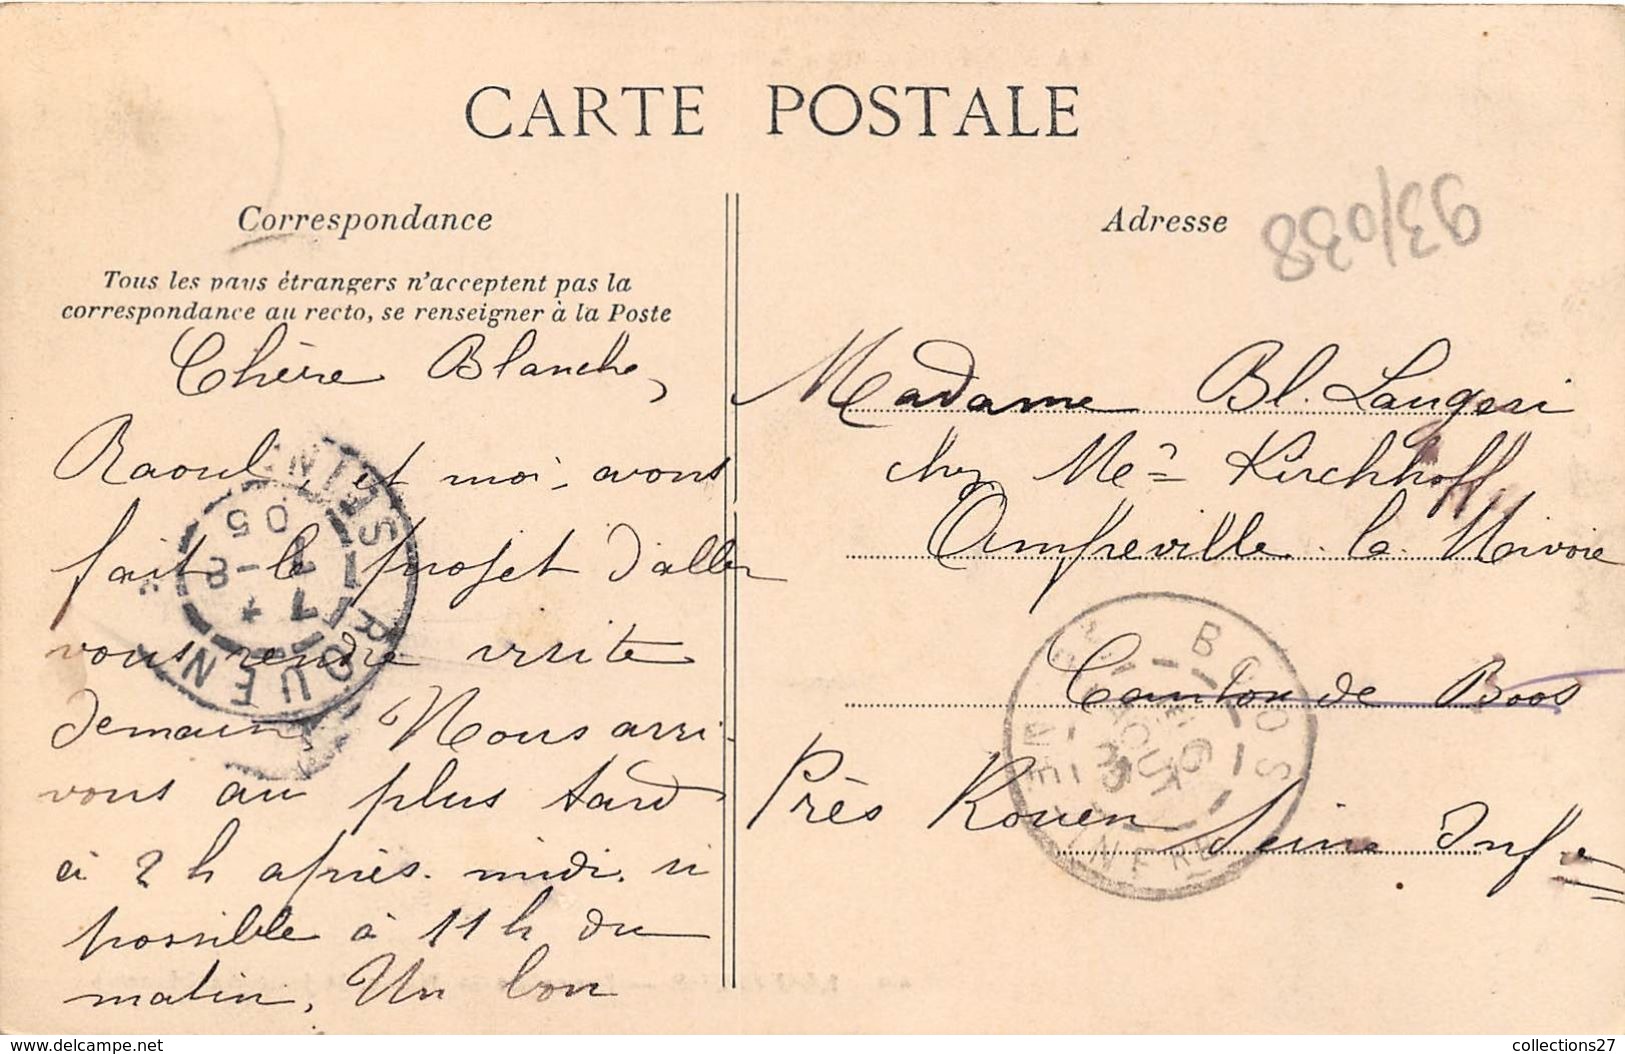 CARTE POSTALE
Correspondance
Tous les pays étrangers n'acceptent pas la
correspondance au recto, se renseigner à la Poste
Chère Blanche,
Raoul, et moi, avons
fait le projet d'aller
vous rendre visite
demain Nous arri-
vons au plus tard
à 2 h après-midi. si
possible à 11 h du
matin. Un bon
Adresse
93/038
Madame Bl. Laugeri
chez Me Kirchhoff
Amfreville-la-Mivoie
Canton de Boos
Près Rouen Seine Infre
ROUEN
SEINE
7-8
05
BOOS
AOUT
SEINE INFRE
www.delcampe.net
collections27